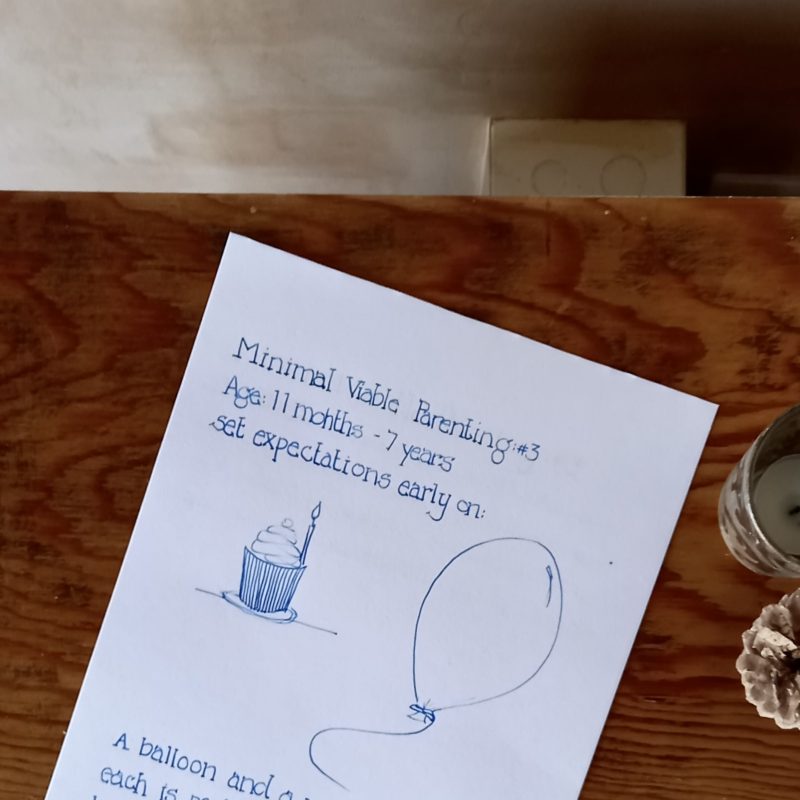 Minimal Viable Parenting: #3
Age: 11 months - 7 years
set expectations early on:
A balloon and a
each is